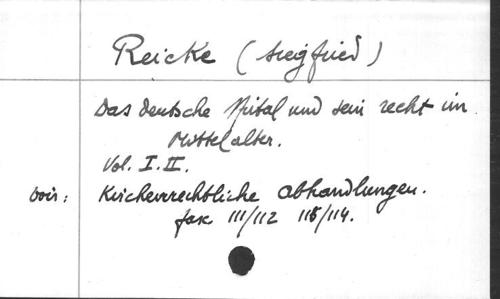 Reicke (Siegfried)
Das deutsche Spital und sein recht im
Mittelalter.
Vol. I. II.
voir: Kirchenrechtliche abhandlungen.
fasc 111/112 113/114.